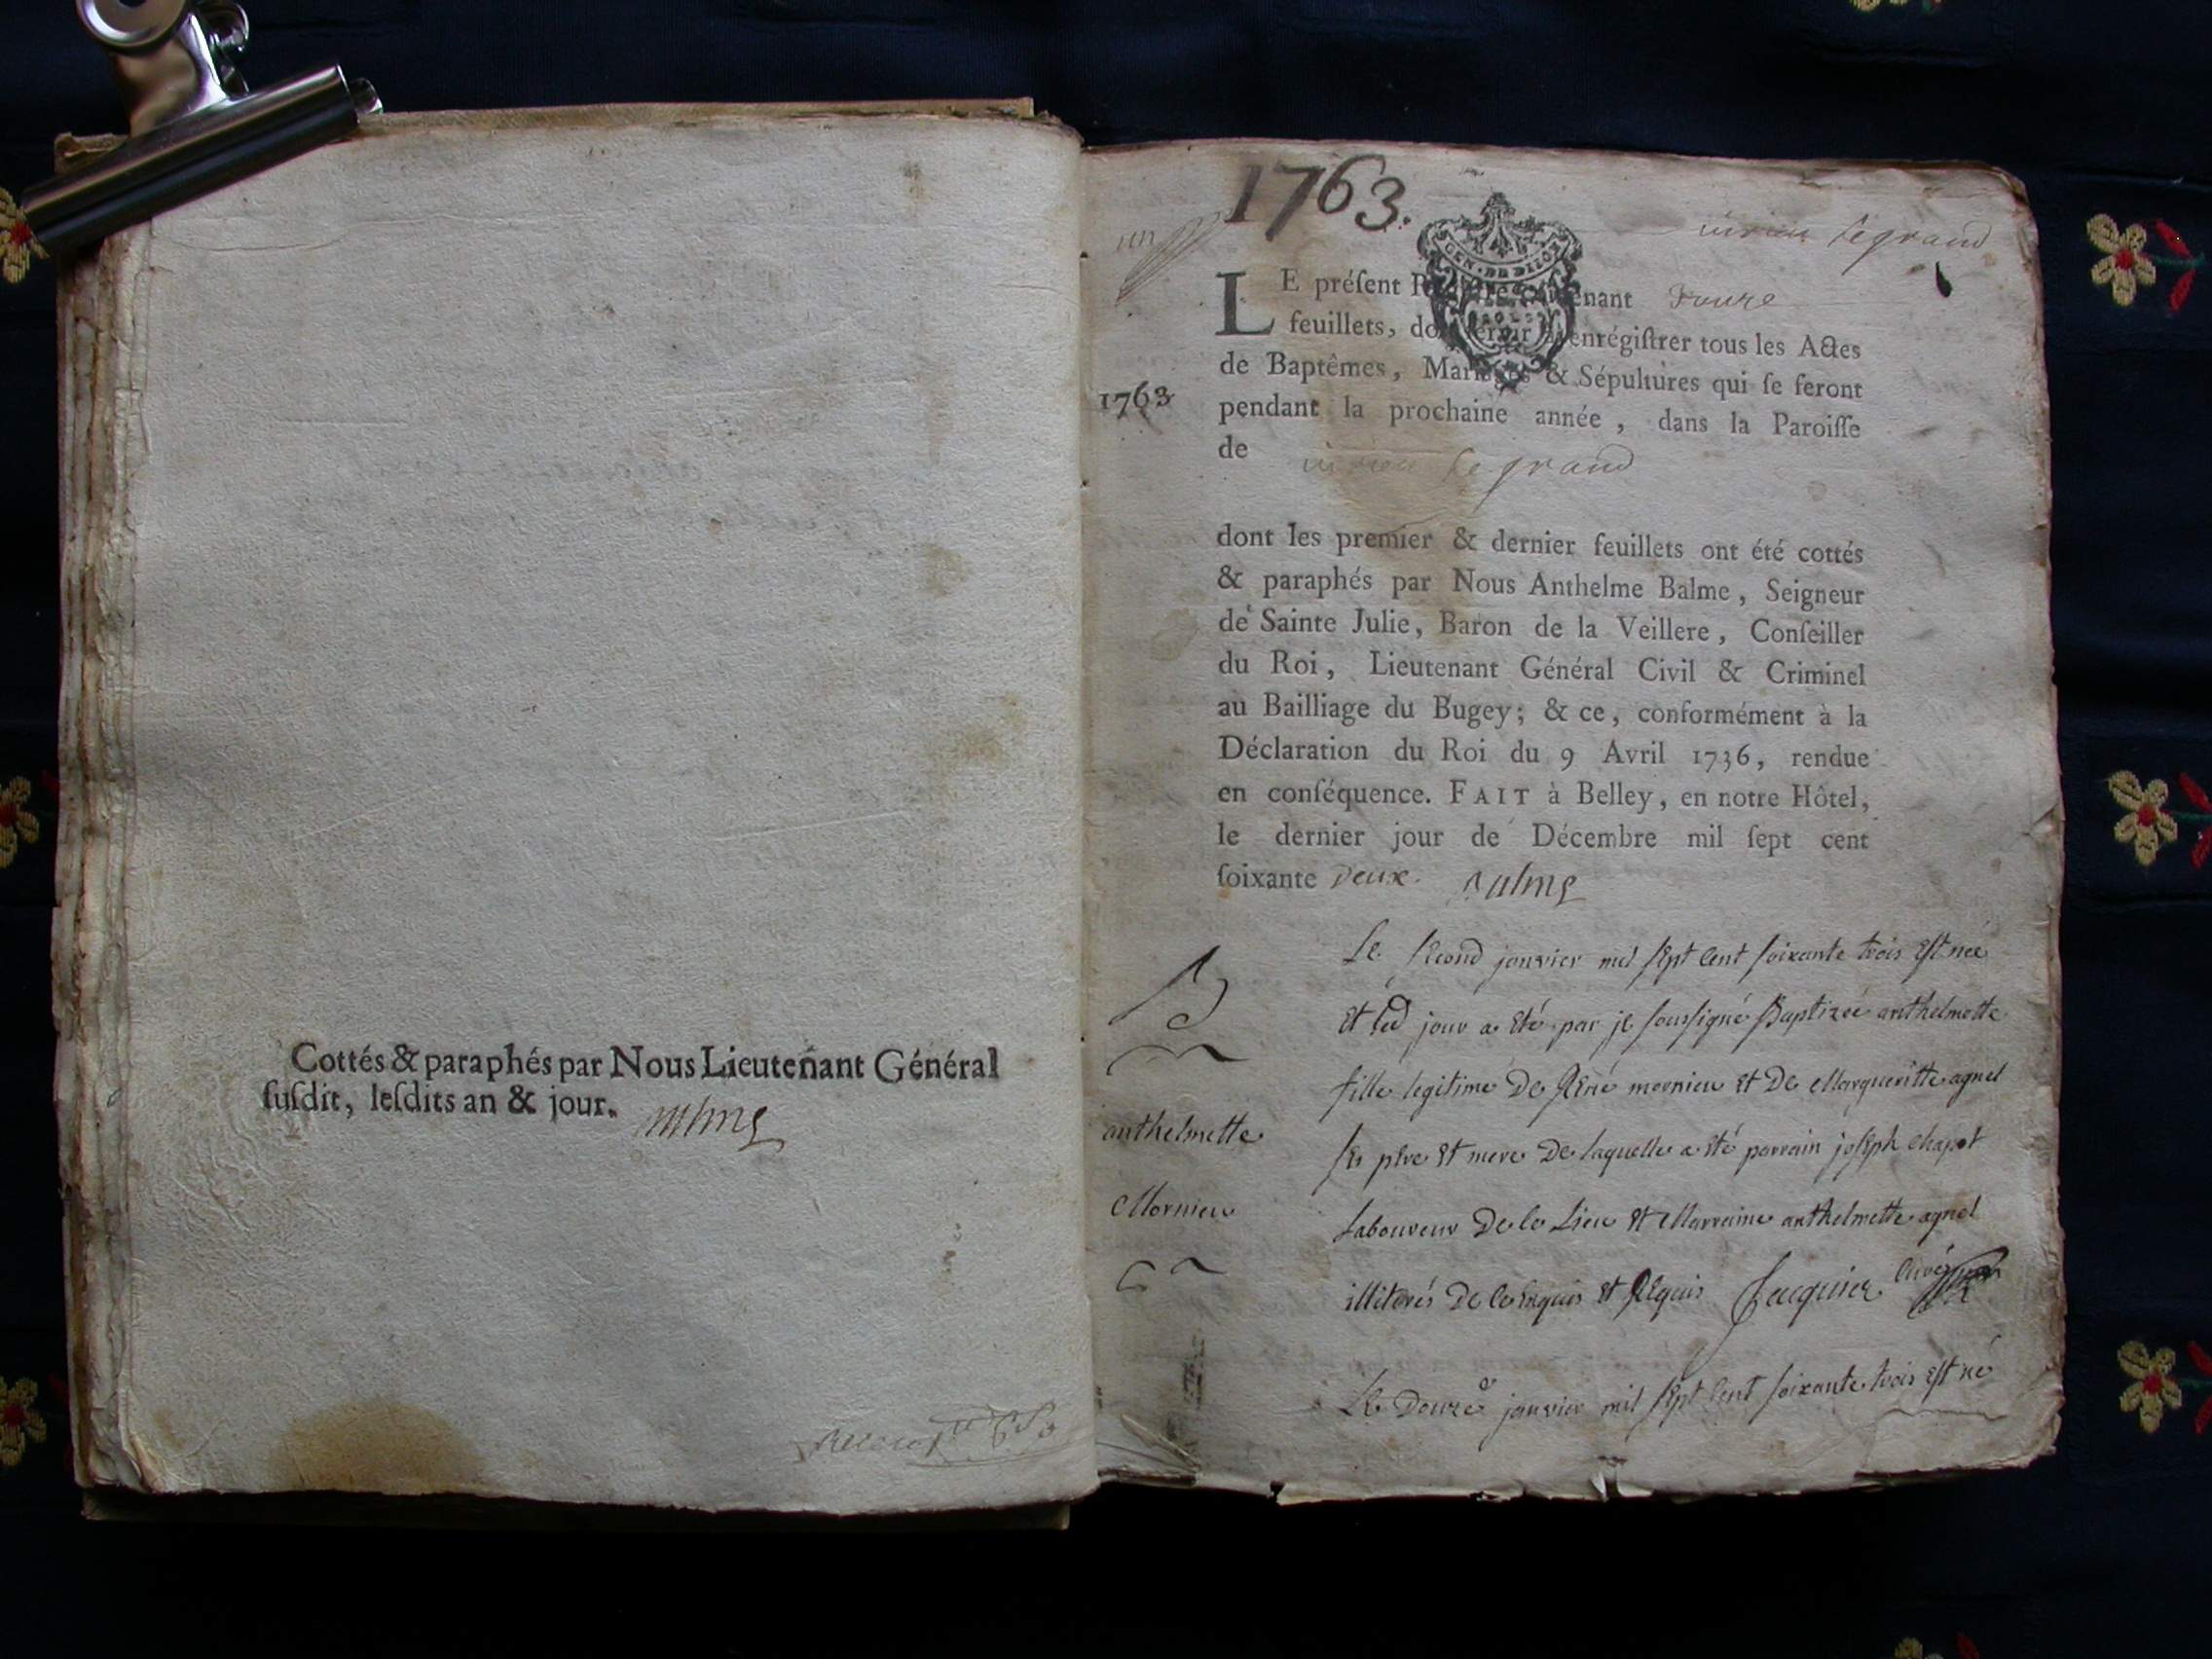 Cottés & paraphés par Nous Lieutenant Général
ſuſdit, leſdits an & jour. Balme
1763.
un
virieu le grand
GEN. DE DIION
LE préſent Regiſtre contenant Douze
feuillets, doit ſervir à enrégiſtrer tous les Actes
de Baptêmes, Mariages & Sépultures qui ſe feront
1763
pendant la prochaine année, dans la Paroiſſe
de virieu le grand
dont les premier & dernier feuillets ont été cottés
& paraphés par Nous Anthelme Balme, Seigneur
de Sainte Julie, Baron de la Veillere, Conſeiller
du Roi, Lieutenant Général Civil & Criminel
au Bailliage du Bugey; & ce, conformément à la
Déclaration du Roi du 9 Avril 1736, rendue
en conſéquence. FAIT à Belley, en notre Hôtel,
le dernier jour de Décembre mil ſept cent
ſoixante deux. Balme
B
anthelmette
Mornieu
Le second janvier mil sept cent soixante trois est née
et led jour a eté par je soussigné Baptizée anthelmette
fille legitime De René mornieu et De Margueritte agnel
ses pere et mere De laquelle a eté parrain joseph chapot
Laboureur De ce Lieu et Marraine anthelmette agnel
illiterés De ce enquis et Requis Jacquier curé
Le Douze janvier mil sept cent soixante trois est né